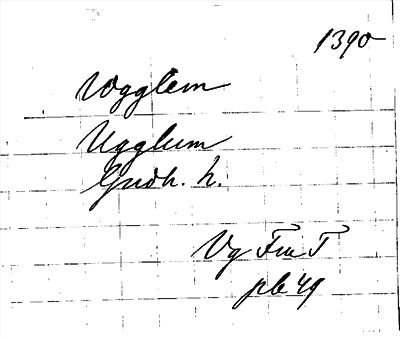 1390
Wgglem
Ugglum
Gudh. h.
Vg Fru T
pb 49